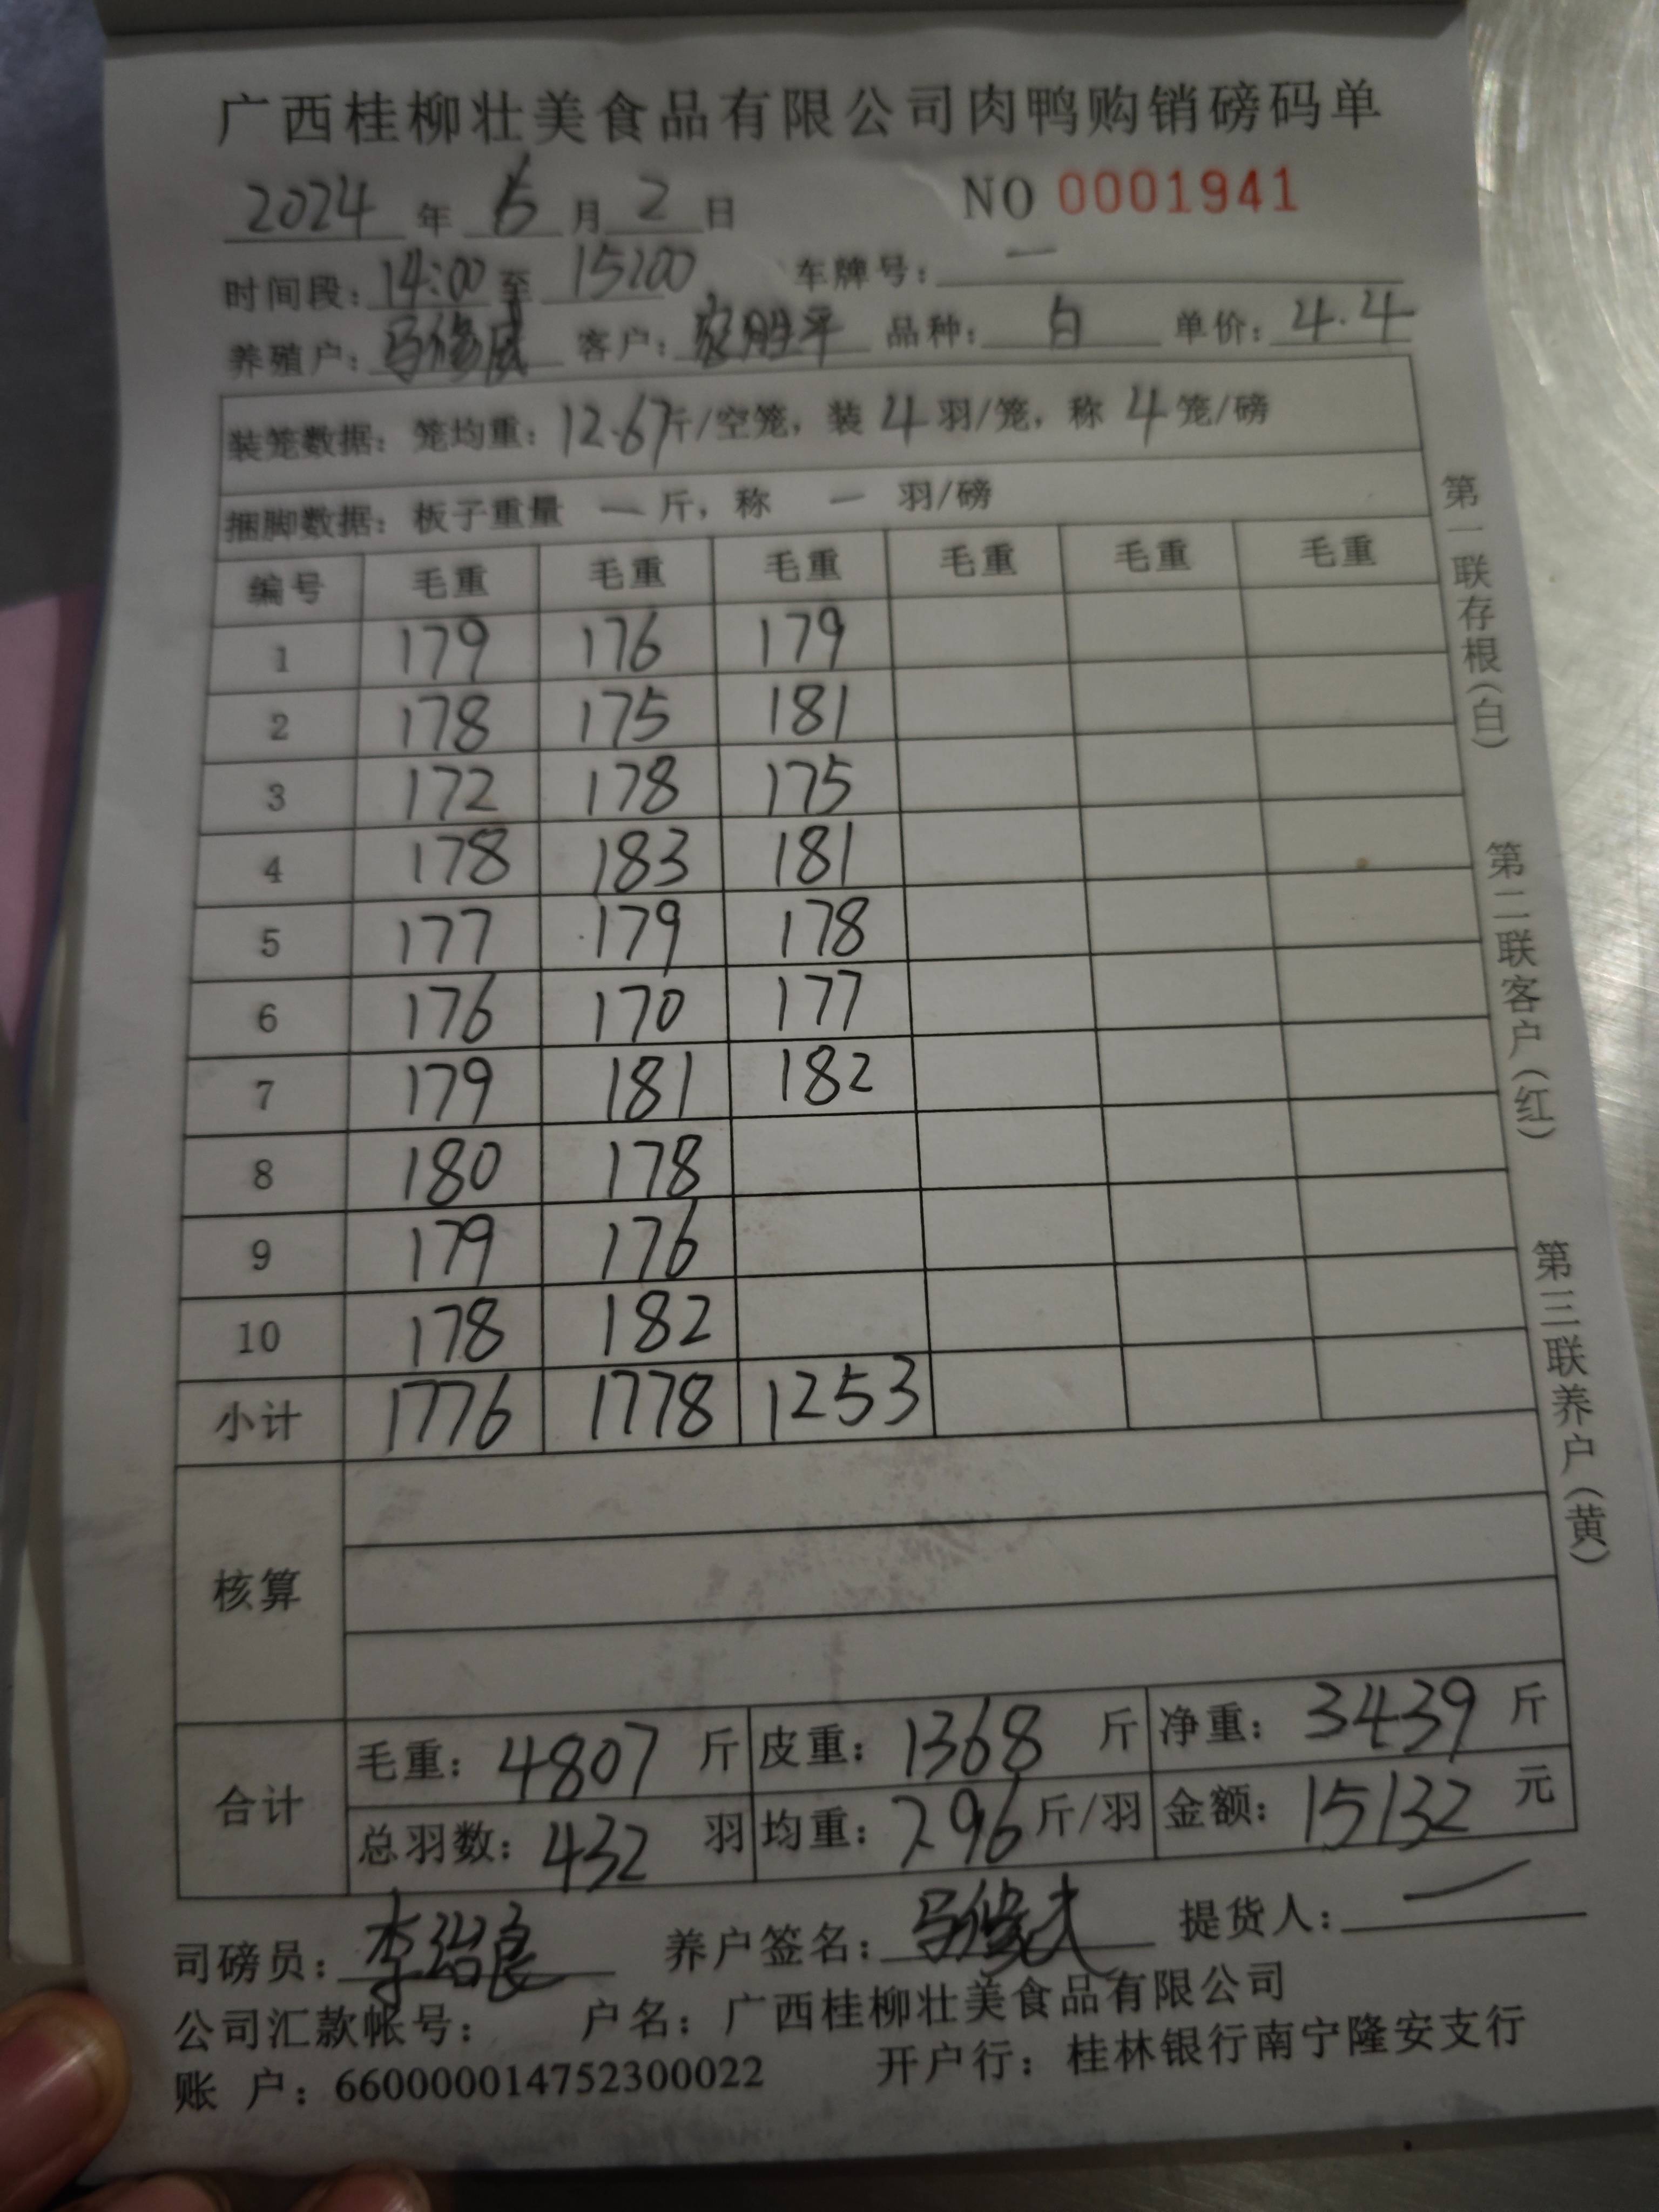 广西桂柳壮美食品有限公司肉鸭购销磅码单
2024 年 月 2 日 NO 0001941
时间段: 14:00 至 15:00 车牌号: 一
养殖户: 客户: 品种: 白 单价: 4.4
装笼数据: 笼均重: 12.67 斤/空笼, 装 4 羽/笼, 称 4 笼/磅
捆脚数据: 板子重量 一 斤, 称 一 羽/磅
编号 毛重 毛重 毛重 毛重 毛重 毛重
1 179 176 179
2 178 175 181
3 172 178 175
4 178 183 181
5 177 179 178
6 176 170 177
7 179 181 182
8 180 178
9 179 176
10 178 182
小计 1776 1778 1253
核算
合计 毛重: 4807 斤 皮重: 1368 斤 净重: 3439 斤
总羽数: 432 羽 均重: 7.96 斤/羽 金额: 15132 元
司磅员: 养户签名: 提货人: 一
公司汇款帐号: 户名: 广西桂柳壮美食品有限公司
账 户: 660000014752300022 开户行: 桂林银行南宁隆安支行
第一联存根(白) 第二联客户(红) 第三联养户(黄)